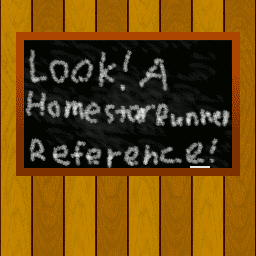 Look! A
HomestarRunner
Reference!